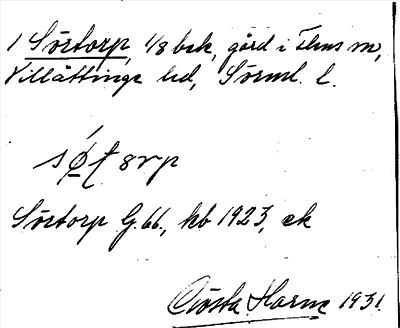 1 Sörtorp, 1/8 bsk, gård i Flens sn,
Villåttinge hd, Sörml. l.
Sörtorp G.66., kb 1923, ek
Gösta Harne 1931.